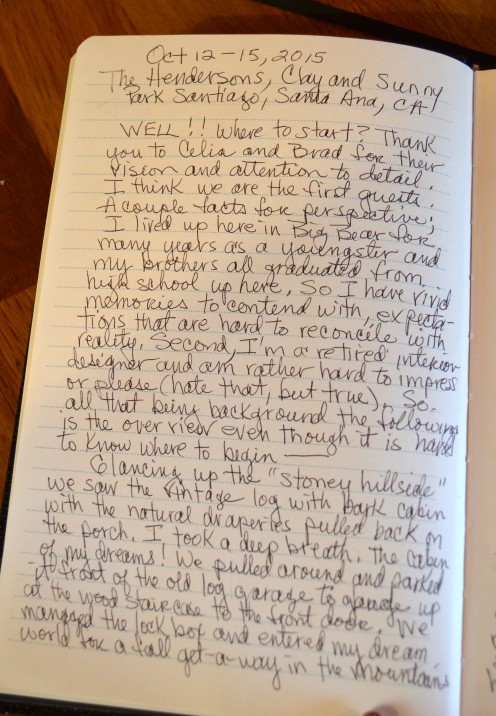 Oct 12-15, 2015
The Hendersons, Clay and Sunny
Park Santiago, Santa Ana, CA
WELL!! Where to start? Thank
you to Celia and Brad for their
vision and attention to detail.
I think we are the first guests.
A couple facts for perspective;
I lived up here in Big Bear for
many years as a youngster and
my brothers all graduated from
high school up here, So I have vivid
memories to contend with, expecta-
tions that are hard to reconcile with
reality. Second, I'm a retired interior
designer and am rather hard to impress
or please (hate that, but true). So
all that being background the following
is the over view even though it is hard
to know where to begin —
Glancing up the "stoney hillside"
we saw the vintage log with bark cabin
with the natural draperies pulled back on
the porch. I took a deep breath. The cabin
of my dreams! We pulled around and parked
in front of the old log garage to gaze up
at the wood staircase to the front door. We
managed the lock box and entered my dream
world for a fall get-a-way in the mountains